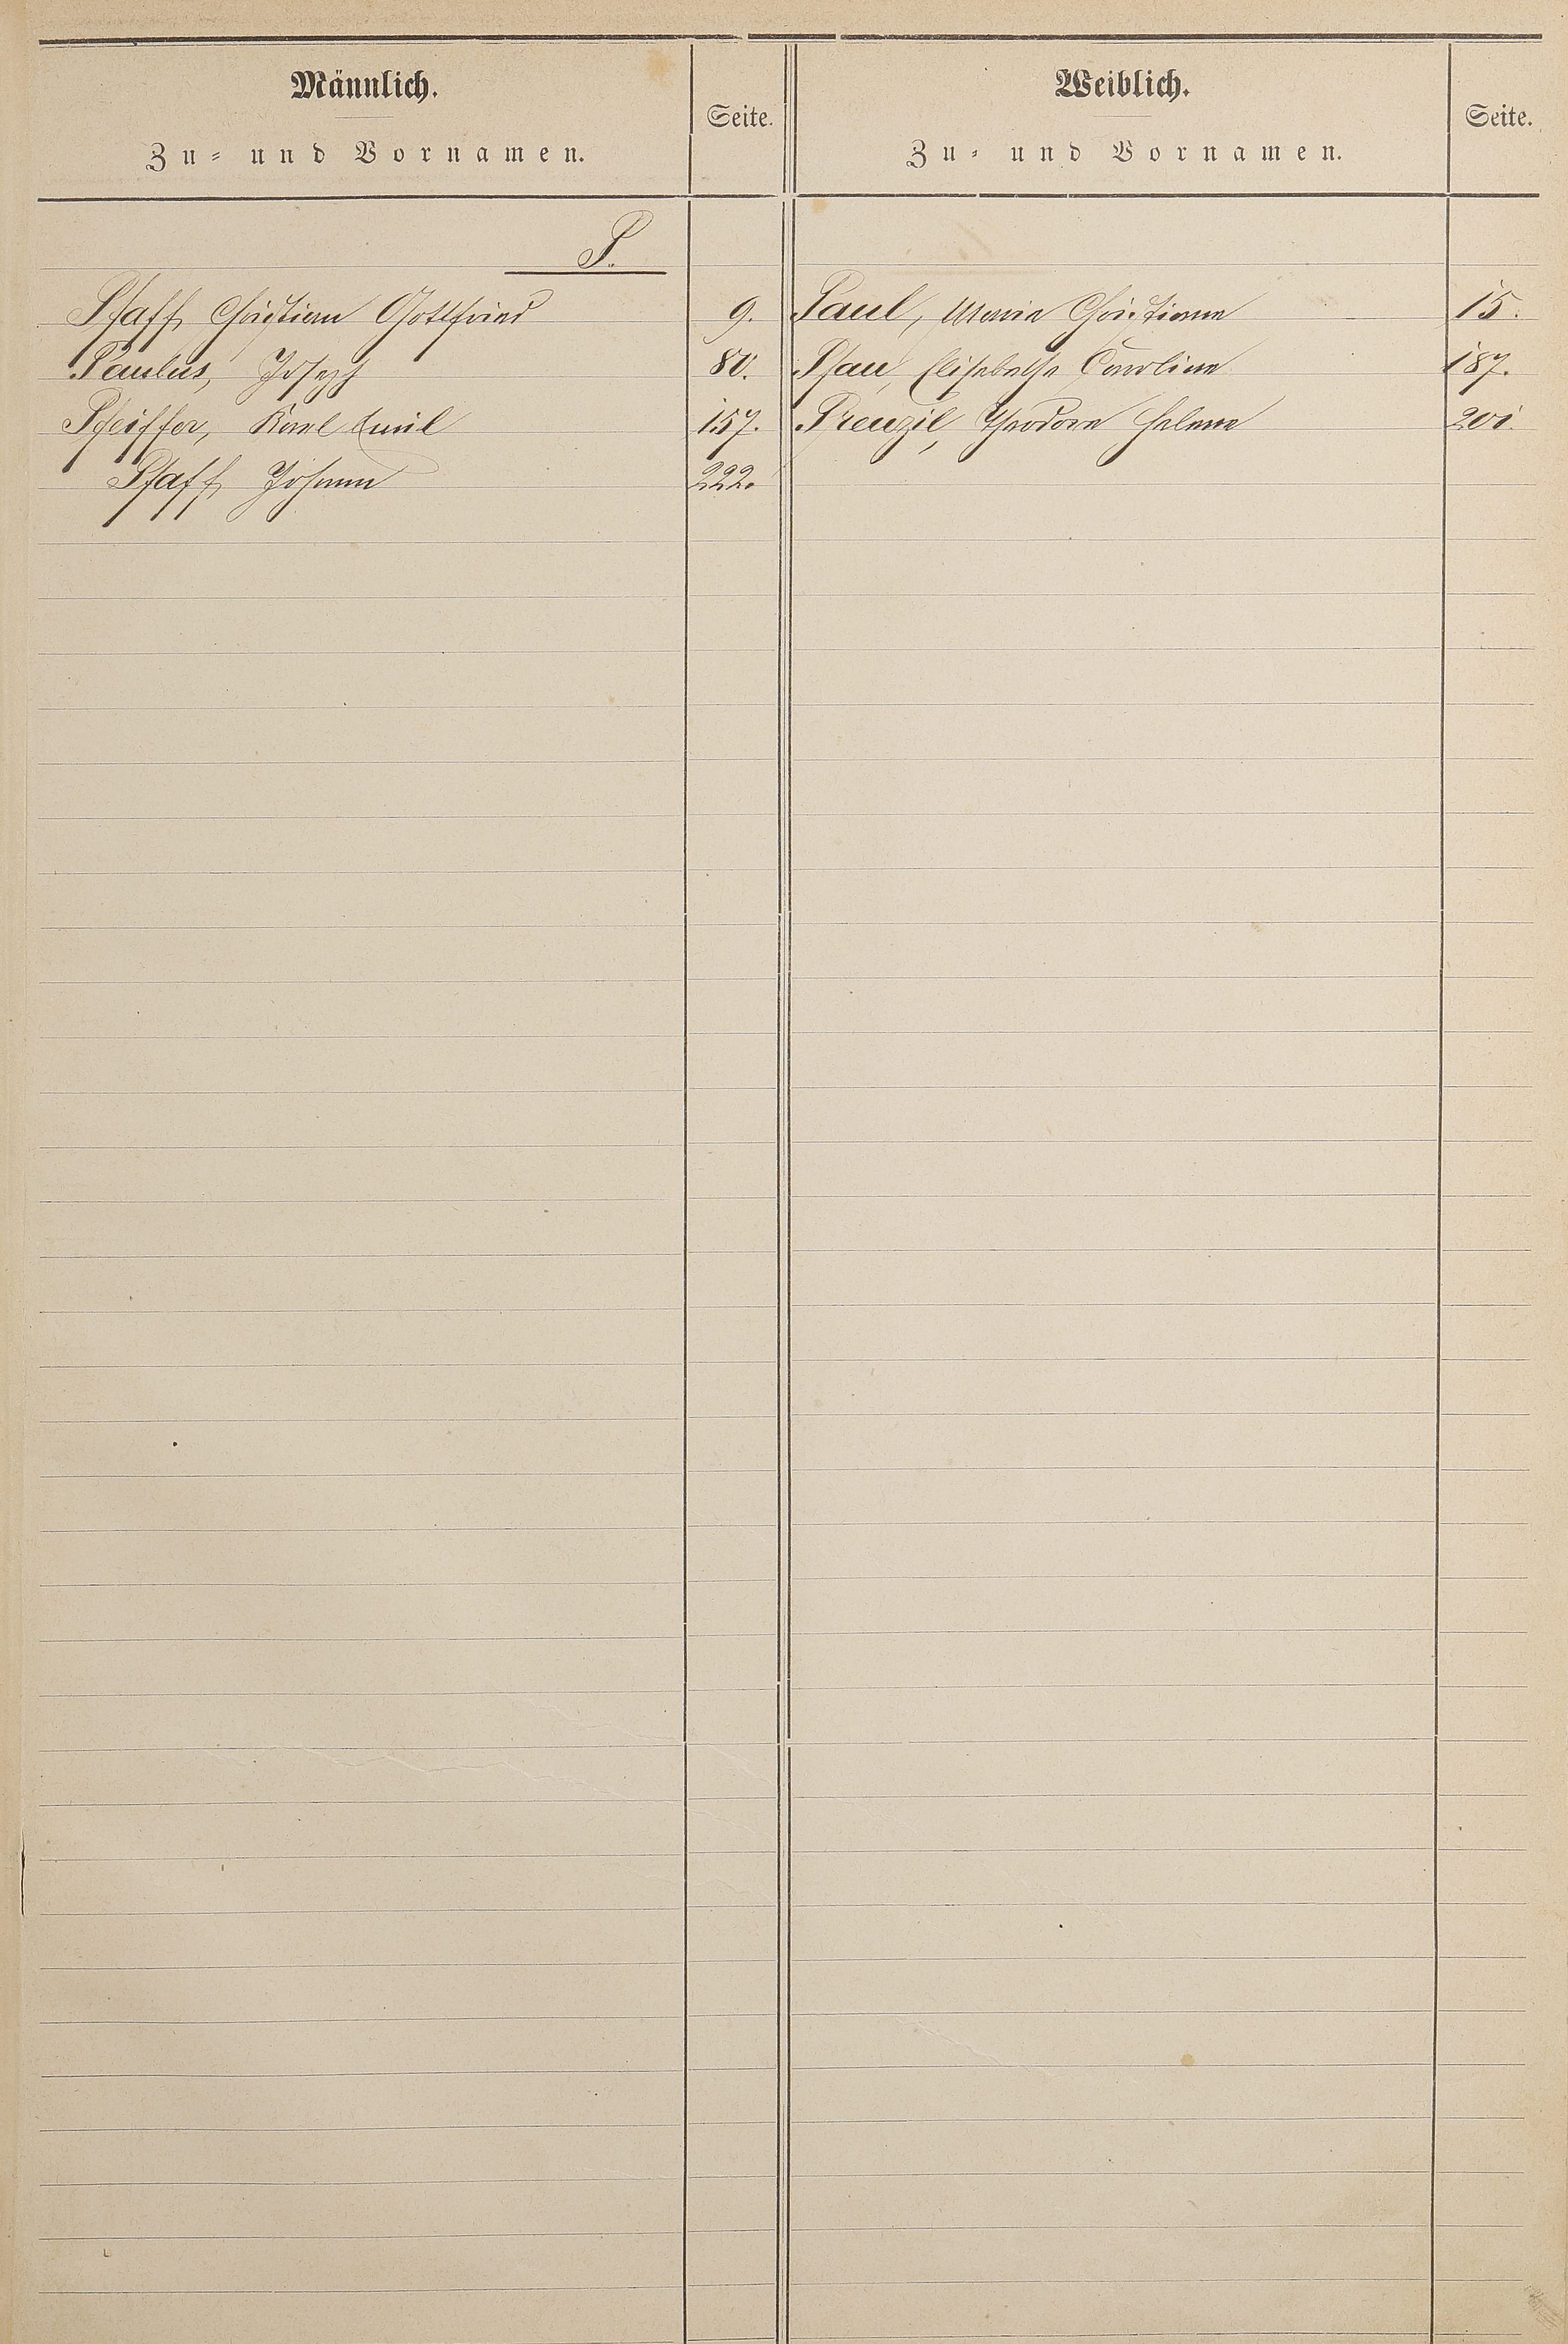 Männlich.
Zu- und Vornamen.
Seite.
Weiblich.
Zu- und Vornamen.
Seite.
P.
Pfaff, Christian Gottfried 9.
Paulus, Joseph 80.
Pfeiffer, Karl Emil 157.
Pfaff, Johann 222.
Paul, Maria Christiane 15.
Pfau, Elisabetha Caroline 187.
Prenzil, Theodora Helene 201.